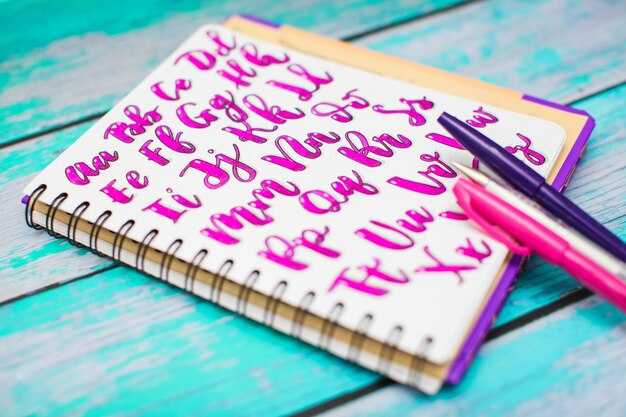 Aa Bb Cc Dd
Ee Ff Gg Hh
Ii Jj Kk Ll
Mm Nn Oo
Pp Qq Rr Ss
Tt Uu Vv Ww
Xx Zz